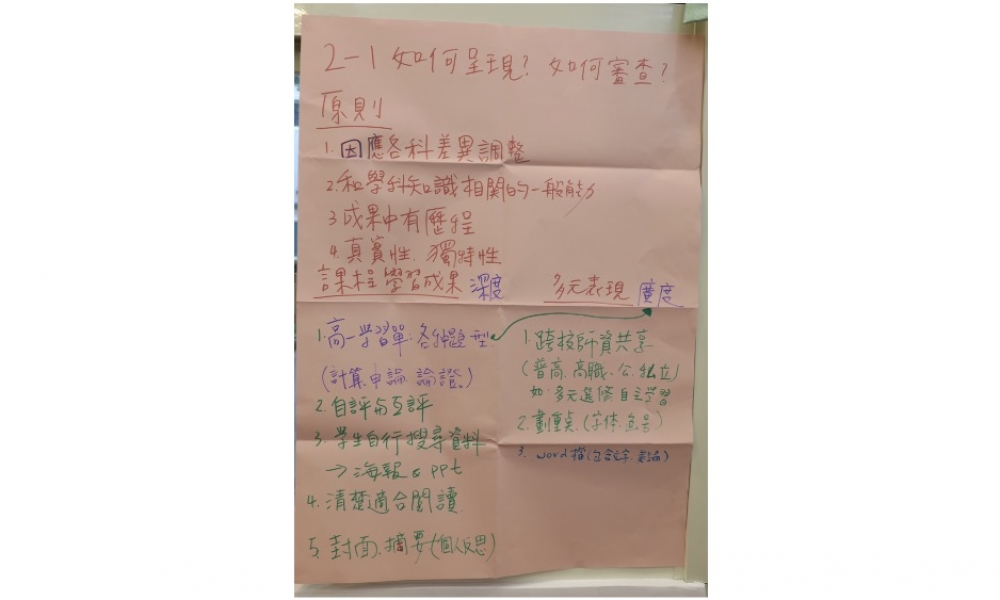 2-1 如何呈現? 如何審查?
原則
1. 因應各科差異調整
2. 和學科知識相關的一般能力
3 成果中有歷程
4. 真實性. 獨特性
課程學習成果 深度
1. 高一學習單:各種題型
(計算. 申論. 論證.)
2. 自評與互評
3. 學生自行搜尋資料
→海報 & ppt
4. 清楚適合閱讀
5. 封面. 摘要(個人反思)
多元表現 廣度
1. 跨校師資共享
(普高. 高職. 公. 私立)
如:多元選修. 自主學習
2. 劃重點. (字体.
3. word檔(包含文字.